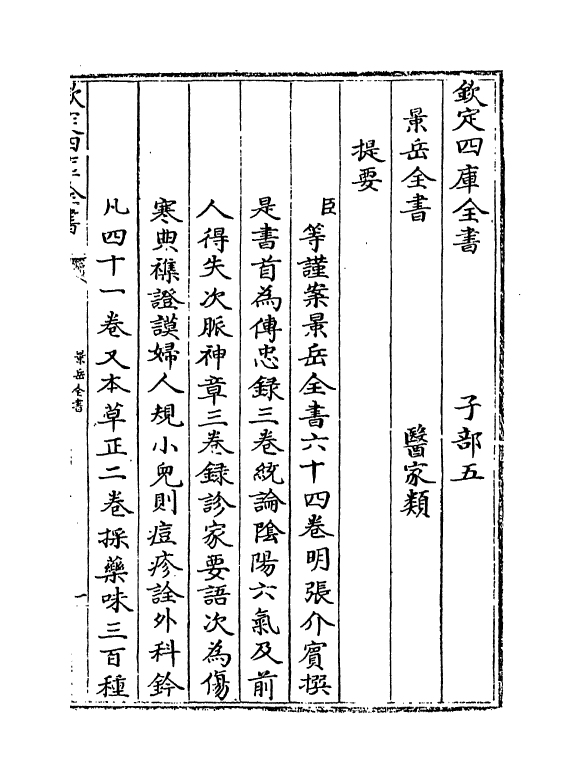 欽定四庫全書 子部五
景岳全書 醫家類
提要
臣等謹案景岳全書六十四卷明張介賔撰
是書首為傳忠録三卷統論隂陽六氣及前
人得失次脈神章三卷録診家要語次為傷
寒典襍證謨婦人規小兒則痘疹詮外科鈐
凡四十一卷又本草正二卷採藥味三百種
欽定四庫全書
景岳全書
一